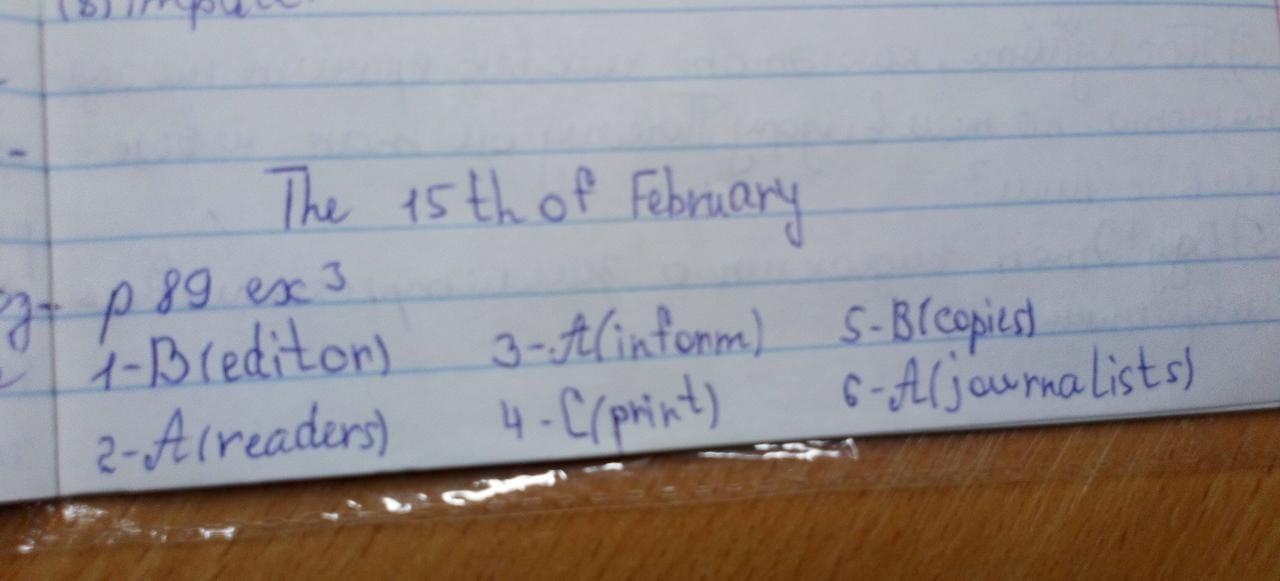 The 15th of February
p 89 ex 3
1-B(editor) 3-A(inform) 5-B(copies)
2-A(readers) 4-C(print) 6-A(journalists)